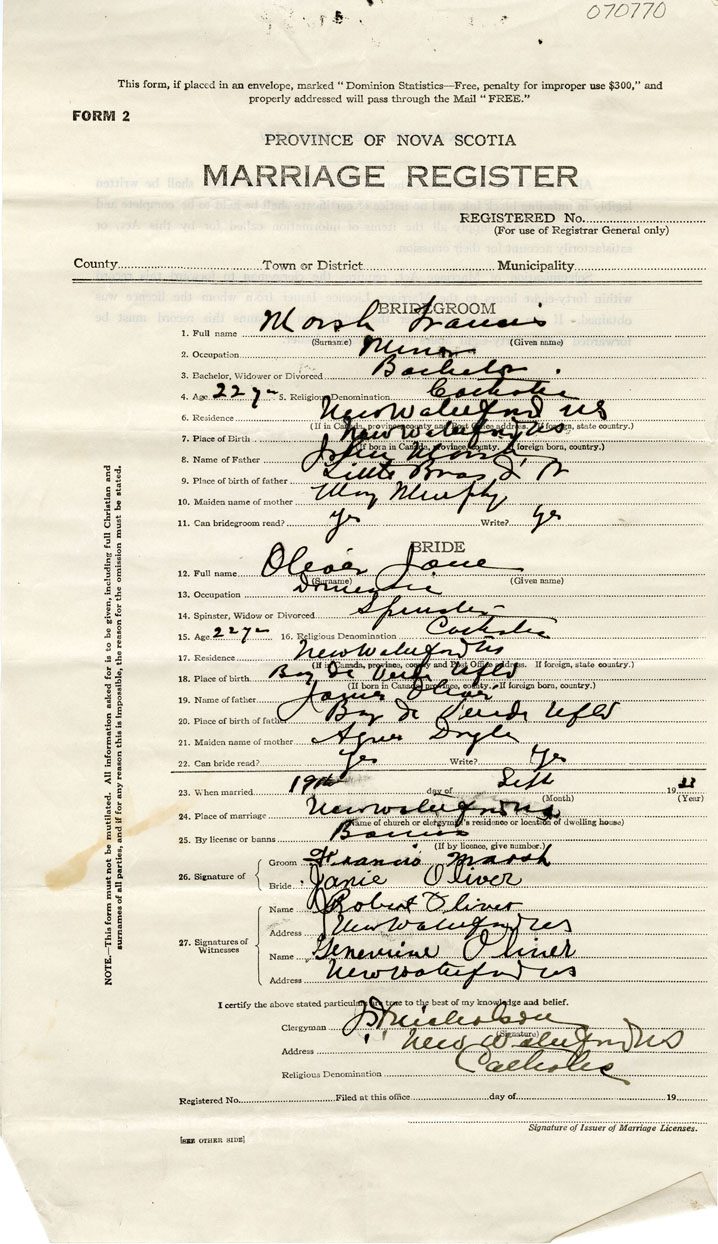 070770
This form, if placed in an envelope, marked "Dominion Statistics—Free, penalty for improper use $300," and
properly addressed will pass through the Mail "FREE."
FORM 2
PROVINCE OF NOVA SCOTIA
MARRIAGE REGISTER
REGISTERED No.
(For use of Registrar General only)
County Town or District Municipality
BRIDEGROOM
1. Full name Marsh Francis
(Surname) (Given name)
2. Occupation Miner
3. Bachelor, Widower or Divorced Bachelor
4. Age 22 yrs 5. Religious Denomination Catholic
6. Residence New Waterford NS
(If in Canada, province, county and Post Office address. If foreign, state country.)
7. Place of Birth New Waterford NS
(If born in Canada, province, county. If foreign born, country.)
8. Name of Father John Marsh
9. Place of birth of father Little Bras d'Or
10. Maiden name of mother May Murphy
11. Can bridegroom read? yes Write? yes
BRIDE
12. Full name Oliver Janie
(Surname) (Given name)
13. Occupation Domestic
14. Spinster, Widow or Divorced Spinster
15. Age 22 yrs 16. Religious Denomination Catholic
17. Residence New Waterford NS
(If in Canada, province, county and Post Office address. If foreign, state country.)
18. Place of birth Bay de Verde Nfld
(If born in Canada, province, county. If foreign born, country.)
19. Name of father James Oliver
20. Place of birth of father Bay de Verde Nfld
21. Maiden name of mother Agnes Doyle
22. Can bride read? Yes Write? Yes
23. When married 19th day of Sept 19 33
(Month) (Year)
24. Place of marriage New Waterford NS
(Name of church or clergyman's residence or location of dwelling house)
25. By license or banns Banns
(If by licence, give number.)
26. Signature of Groom Francis Marsh
Bride Janie Oliver
27. Signatures of Witnesses
Name Robert Oliver
Address New Waterford NS
Name Oliver
Address New Waterford NS
I certify the above stated particulars are true to the best of my knowledge and belief.
Clergyman Nicholson
(Signature)
Address New Waterford NS
Religious Denomination Catholic
Registered No. Filed at this office day of 19
Signature of Issuer of Marriage Licenses.
[SEE OTHER SIDE]
NOTE.—This form must not be mutilated. All information asked for is to be given, including full Christian and
surnames of all parties, and if for any reason this is impossible, the reason for the omission must be stated.